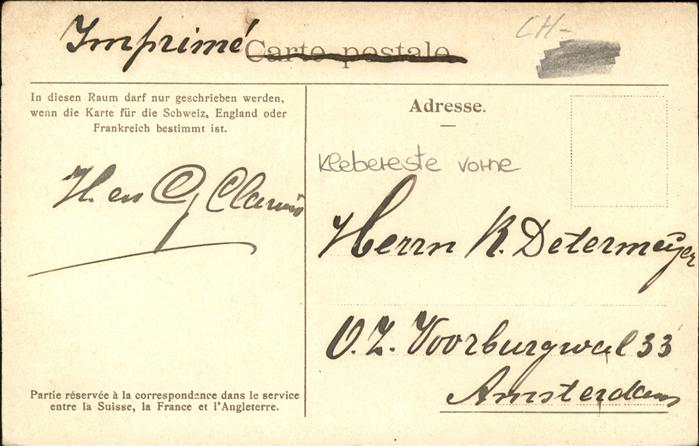 Imprimé
Carte postale
CH-
In diesen Raum darf nur geschrieben werden,
wenn die Karte für die Schweiz, England oder
Frankreich bestimmt ist.
Adresse.
Klebereste vorne
H. en
Herrn K. Determeijer
O.Z. Voorburgwal 33
Amsterdam
Partie réservée à la correspondance dans le service
entre la Suisse, la France et l'Angleterre.